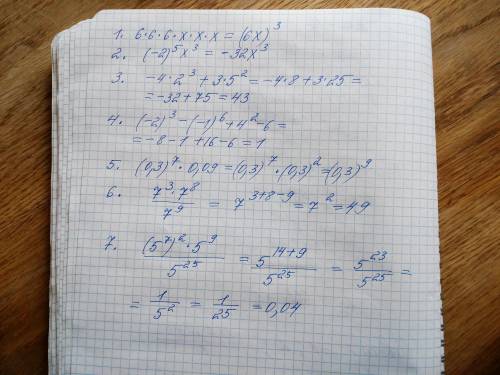 1. 6·6·6·x·x·x = (6x)³
2. (-2)⁵x³ = -32x³
3. -4·2³+3·5² = -4·8+3·25 =
= -32+75 = 43
4. (-2)³-(-1)⁶+4²-6 =
= -8-1+16-6 = 1
5. (0,3)⁷·0,09 = (0,3)⁷·(0,3)² = (0,3)⁹
6. 7³·7⁸/7⁹ = 7³⁺⁸⁻⁹ = 7² = 49
7. (5⁷)²·5⁹/5²⁵ = 5¹⁴⁺⁹/5²⁵ = 5²³/5²⁵ =
= 1/5² = 1/25 = 0,04